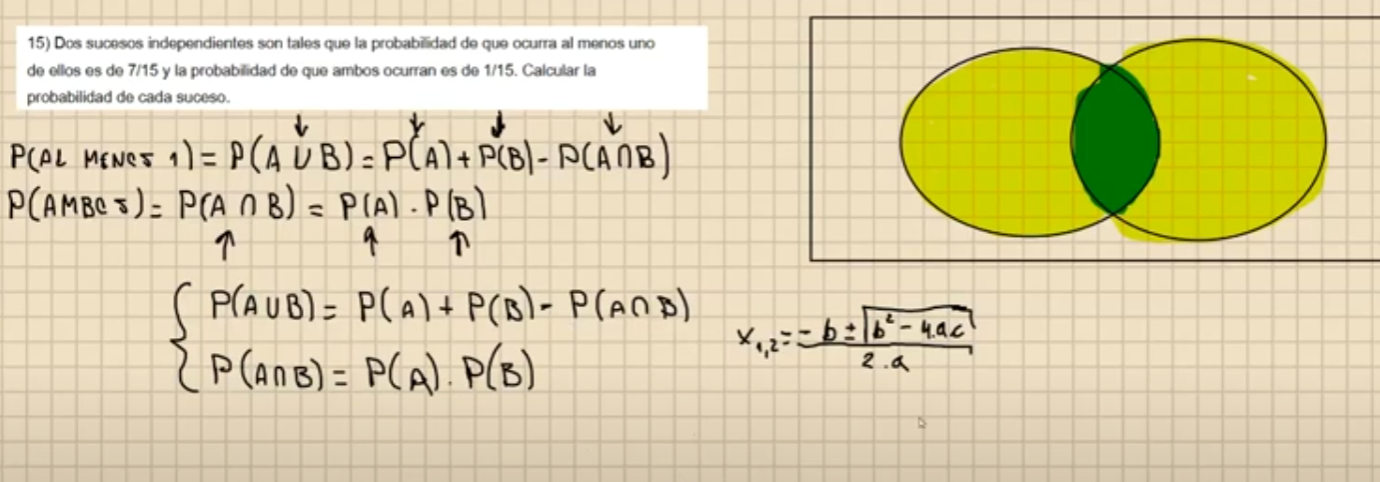 15) Dos sucesos independientes son tales que la probabilidad de que ocurra al menos uno
de ellos es de 7/15 y la probabilidad de que ambos ocurran es de 1/15. Calcular la
probabilidad de cada suceso.
P(AL MENOS 1) = P(A ∪ B) = P(A) + P(B) - P(A ∩ B)
P(AMBOS) = P(A ∩ B) = P(A) . P(B)
P(A ∪ B) = P(A) + P(B) - P(A ∩ B)
P(A ∩ B) = P(A) . P(B)
x₁,₂ = (-b ± √(b² - 4.a.c)) / 2.a